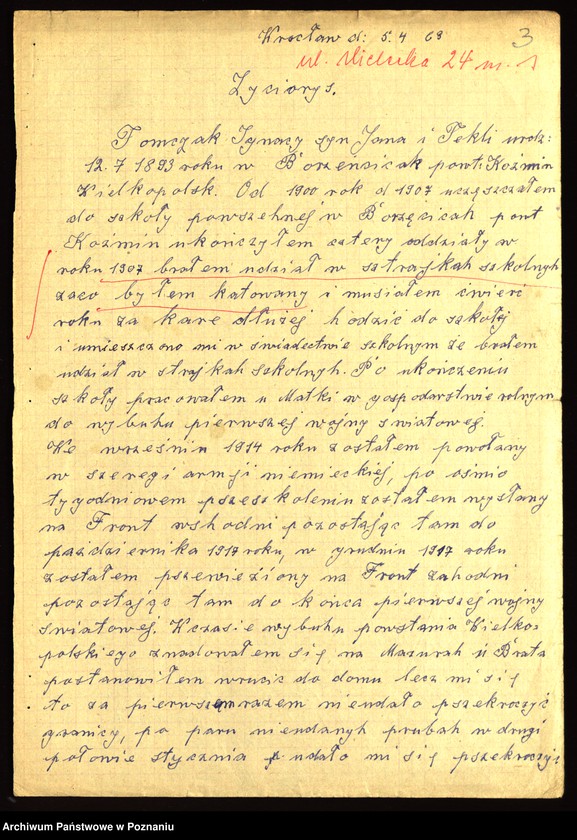 Wrocław d: 5. 4 68
3
ul. Mielecka 24 m. 1
Życiorys.
Tomczak Ignacy syn Jana i Tekli urodz:
12. 7 1893 roku w Borzęcicak powt: Koźmin
Wielkopolsk. Od 1900 rok d 1907 uczęszczałem
do szkoły powszehnej w Borzęcicah pont
Koźmin ukończyłem cztery oddziały w
roku 1907 brałem udział w sztrajkah szkolnyh
zaco byłem katowany i musiałem ćwierć
roku za kare dłużej hodzić do szkołej
i umieszczono mi w świadectwie szkolnym że brałem
udział w strajkah szkolnyh. Po ukończeniu
szkoły pracowałem u Matki w gospodarstwie rolnym
do wybuhu pierwszej wojny światowej.
We wrześniu 1914 roku zostałem powołany
w szeregi armji niemieckiej, po ośmio
tygodniowem pszeszkoleniu zostałem wysłany
na Front wshodni pozostając tam do
października 1917 roku, w grudniu 1917 roku
zostałem pszewieziony na Front zahodni
pozostając tam do końca pierwszej wojny
światowej. Wczasie wybuhu powstania Wielko=
polskiego znadowałem się na Mazurah u Brata
postanowiłem wrucić do domu lecz mi się
to za pierwszem razem nieudało pszekroczyć
granicy, po paru nieudanyh prubah w drugi
połowie stycznia udało mi się pszekroczyć
Archiwum Państwowe w Poznaniu